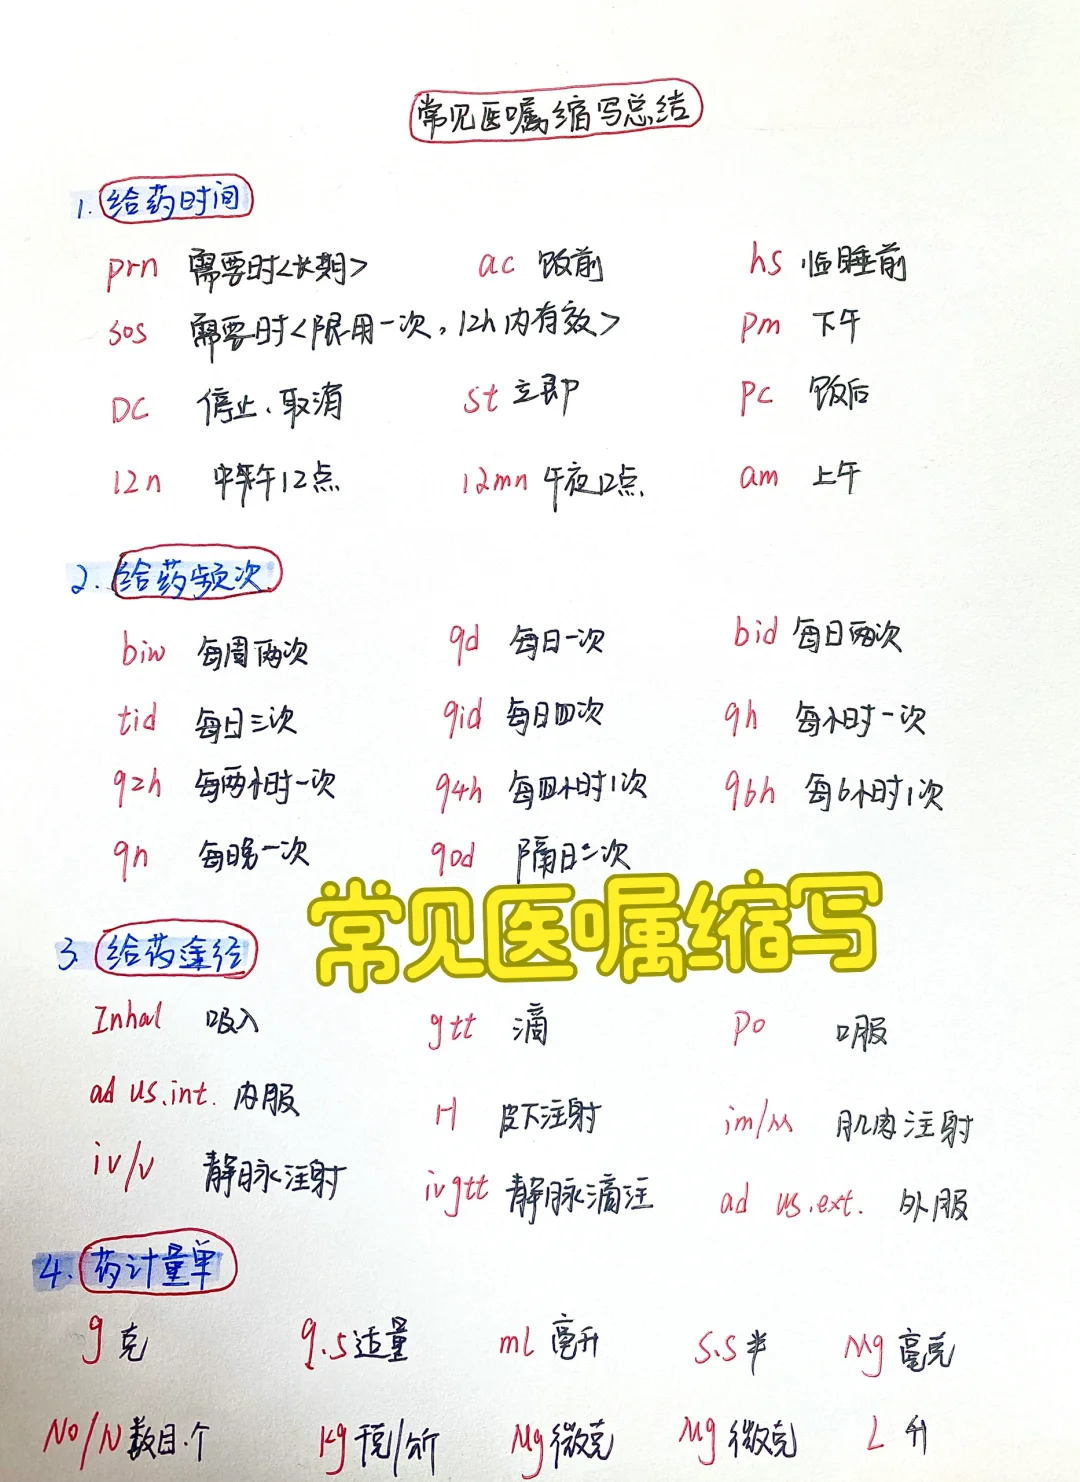 常见医嘱缩写总结
1. 给药时间
prn 需要时<长期> ac 饭前 hs 临睡前
sos 需要时<限用一次，12h内有效> pm 下午
DC 停止、取消 st 立即 pc 饭后
12n 中午12点 12mn 午夜12点 am 上午
2. 给药频次
biw 每周两次 qd 每日一次 bid 每日两次
tid 每日三次 qid 每日四次 qh 每小时一次
q2h 每两小时一次 q4h 每四小时1次 q6h 每6小时1次
qn 每晚一次 qod 隔日一次
常见医嘱缩写
3. 给药途径
Inhal 吸入 gtt 滴 po 口服
ad us.int. 内服 H 皮下注射 im/M 肌肉注射
iv/v 静脉注射 ivgtt 静脉滴注 ad us.ext. 外服
4. 药计量单
g 克 q.s 适量 ml 毫升 s.s 半 Mg 毫克
No/N 数目.个 kg 千克/公斤 Mg 微克 Mg 微克 L 升